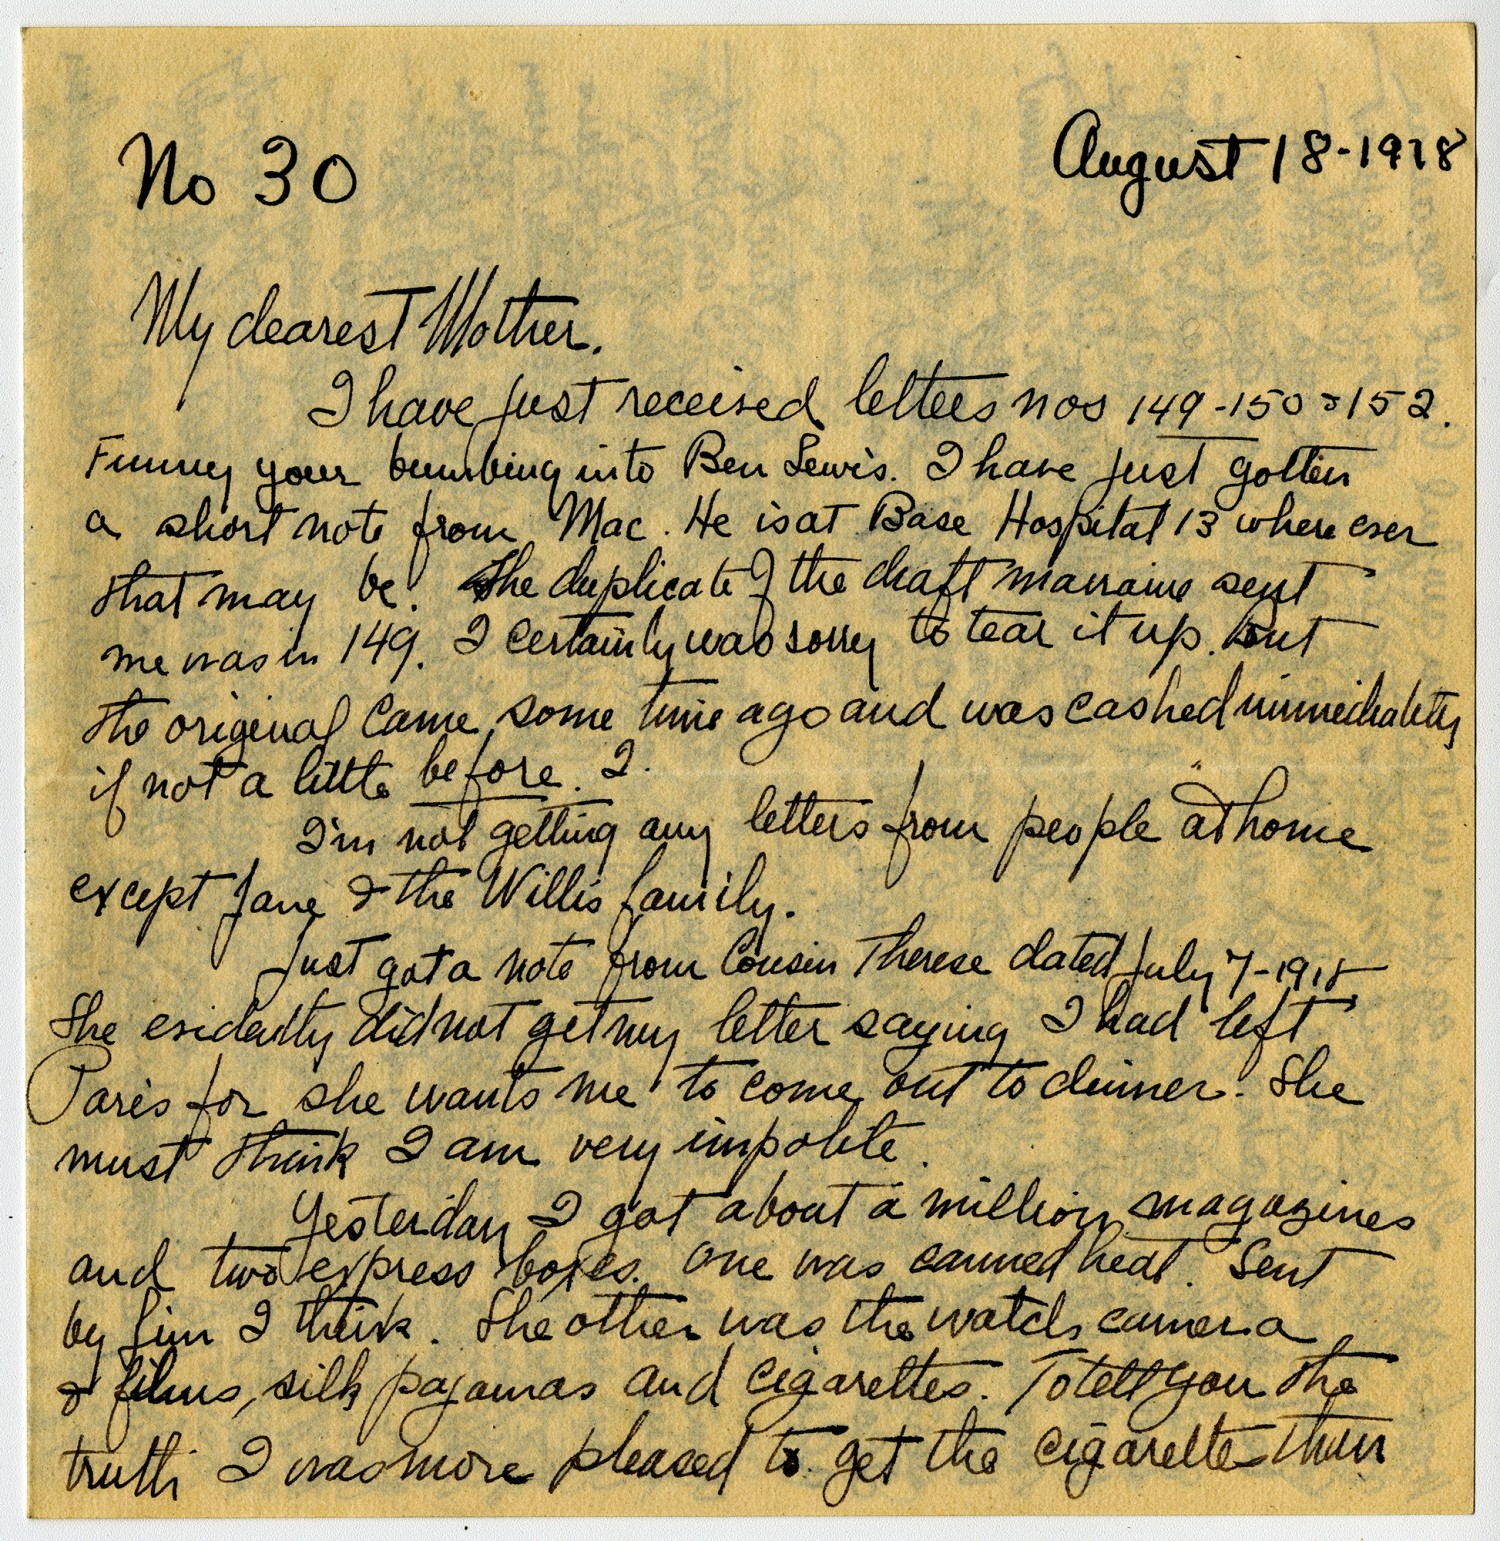 No 30
August 18-1918
My dearest Mother.
I have just received letters nos 149-150 & 152.
Funny your bumbing into Ben Lewis. I have just gotten
a short note from Mac. He is at Base Hospital 13 where ever
that may be. The duplicate of the draft marraine sent
me was in 149. I certainly was sorry to tear it up. But
the original came some time ago and was cashed immediately
if not a little before. I.
I'm not getting any letters from people at home
except Jane & the Willis family.
Just got a note from Cousin Therese dated July 7-1918
She evidently did not get my letter saying I had left
Paris for she wants me to come out to dinner. She
must think I am very impolite.
Yesterday I got about a million magazines
and two express boxes. One was canned heat. Sent
by Jim I think. The other was the watch camera
& films, silk pajamas and cigarettes. To tell you the
truth I was more pleased to get the cigarettes than